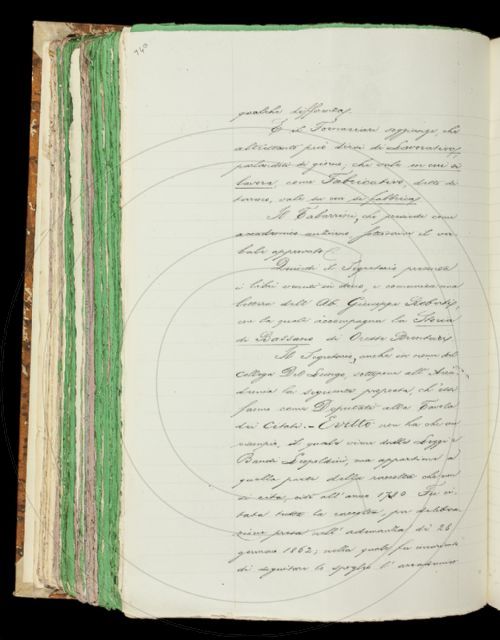 740
qualche differenza.
E il Fornacciari soggiunge, che
altrettanto può dirsi di Lavorativo,
parlandosi di giorno, che vale in cui si
lavora, come Fabricativo, detto di
terreno, vale su cui si fabbrica.
Il Tabarrini, che presiede come
accademico anziano, fa il ver-
bale approvato.
Quindi il Segretario presenta
i libri venuti in dono, e comunica una
lettera dell' Ab. Giuseppe Roberti,
con la quale accompagna la Storia
di Bassano di Oreste Brentari.
Il Segretario, anche in nome del
Collega Del Lungo, sottopone all' Acca-
demia la seguente proposta, ch' essi
fanno come Deputati alla Tavola
dei Citati. - Evitto non ha che un
esempio, il quale viene dalle Leggi e
Bandi Leopoldini, ma appartiene a
quella parte della raccolta che non
si cita, cioè all' anno 1780. Fu ci-
tata tutta la raccolta, per delibera-
zione presa nell' adunanza di 28
gennaio 1862; nella quale fu
di seguitare lo spoglio l' accademico